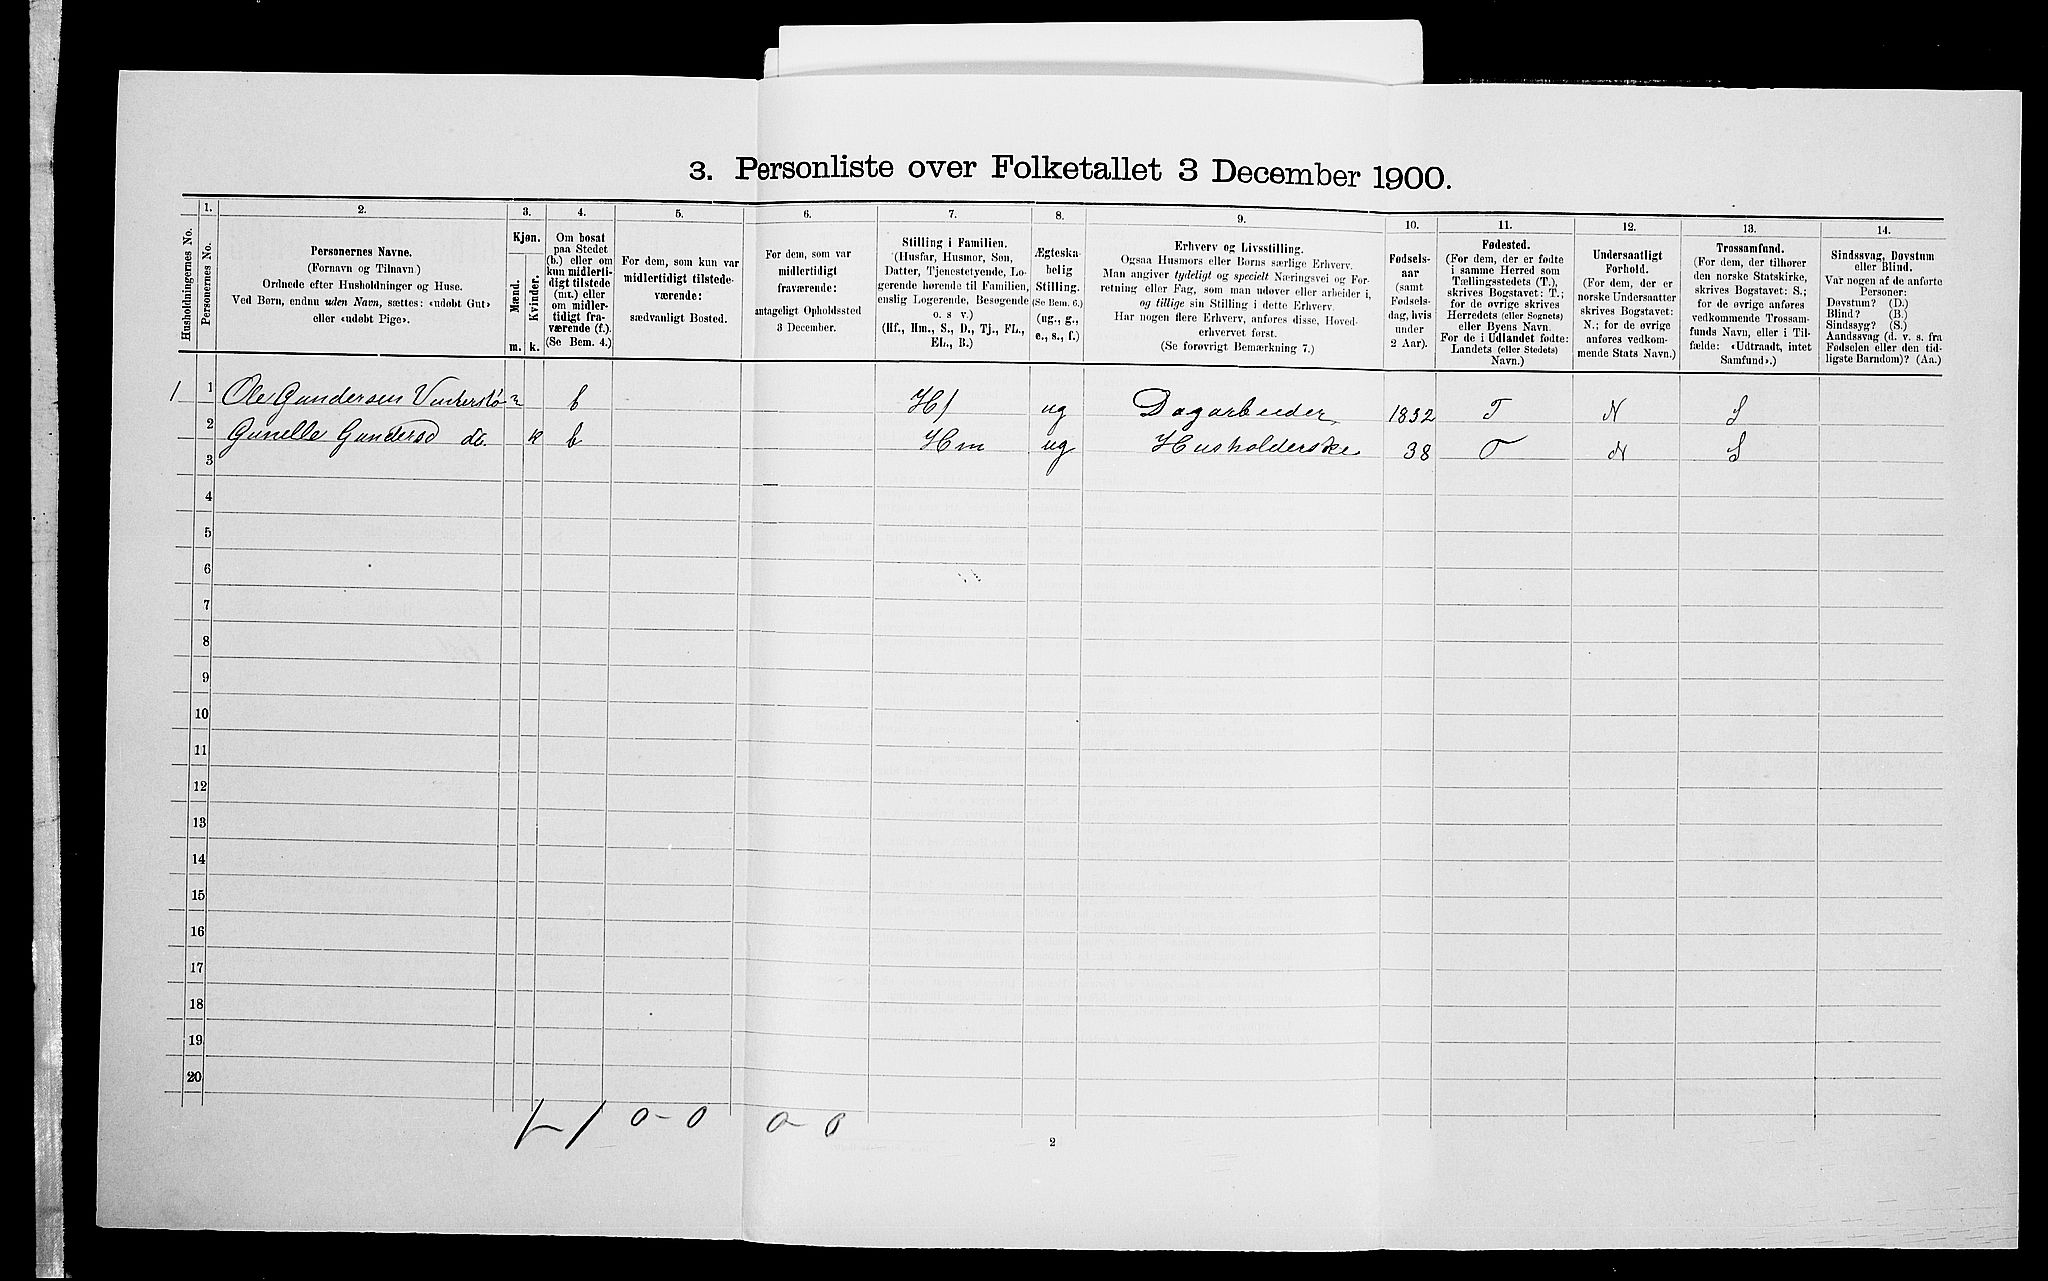 3. Personliste over Folketallet 3 December 1900.
Husholdningernes No.
1.
Personernes No.
2.
Personernes Navne.
(Fornavn og Tilnavn.)
Ordnede efter Husholdninger og Huse.
Ved Børn, endnu uden Navn, sættes: «udøbt Gut»
eller «udøbt Pige».
3.
Kjøn.
Mænd.
Kvinder.
m. k.
4.
Om bosat
paa Stedet
(b.) eller om
kun midlerti-
digt tilstede
(mt.) eller
om midler-
tidigt fra-
værende (f.).
(Se Bem. 4.)
5.
For dem, som kun var
midlertidigt tilstede-
værende:
sædvanligt Bosted.
6.
For dem, som var
midlertidigt
fraværende:
antageligt Opholdssted
3 December.
7.
Stilling i Familien.
(Husfar, Husmor, Søn,
Datter, Tjenestetyende, Lo-
gerende hørende til Familien,
enslig Logerende, Besøgende
o. s. v.)
(Hf., Hm., S., D., Tj., FL.,
EL., B.)
8.
Ægteska-
belig
Stilling.
(Se Bem. 6.)
(ug., g.,
e., s., f.)
9.
Erhverv og Livsstilling.
Ogsaa Husmors eller Børns særlige Erhverv.
Man angiver tydeligt og specielt Næringsvei og For-
retning eller Fag, som man udøver eller arbeider i,
og tillige sin Stilling i dette Erhverv.
Har nogen flere Erhverv, anføres disse, Hoved-
erhvervet først.
(Se forøvrigt Bemærkning 7.)
10.
Fødsels-
aar
(samt
Fødsels-
dag, hvis
under
2 Aar).
11.
Fødested.
(For dem, der er fødte
i samme Herred som
Tællingsstedets (T.),
skrives Bogstavet: T.;
for de øvrige skrives
Herredets (eller Sognets)
eller Byens Navn.
For de i Udlandet fødte:
Landets (eller Stedets)
Navn.)
12.
Undersaatligt
Forhold.
(For dem, der er
norske Undersaatter
skrives Bogstavet:
N.; for de øvrige
anføres vedkom-
mende Stats Navn.)
13.
Trossamfund.
(For dem, der tilhører
den norske Statskirke,
skrives Bogstavet: S.;
for de øvrige anføres
vedkommende Trossam-
funds Navn, eller i Til-
fælde: «Udtraadt, intet
Samfund».)
14.
Sindssvag, Døvstum
eller Blind.
Var nogen af de anførte
Personer:
Døvstum? (D.)
Blind? (B.)
Sindssyg? (S.)
Aandssvag (d. v. s. fra
Fødselen eller den tid-
ligste Barndom)? (Aa.)
1 1 Ole Gundersen m b Hf ug Dagarbeider 1832 T N S
2 Gunelle Gundersd do. k b Hm ug Husholderske 38 T N S
3
4
5
6
7
8
9
10
11
12
13
14
15
16
17
18
19
20
1 0 - 0 0 - 0
2